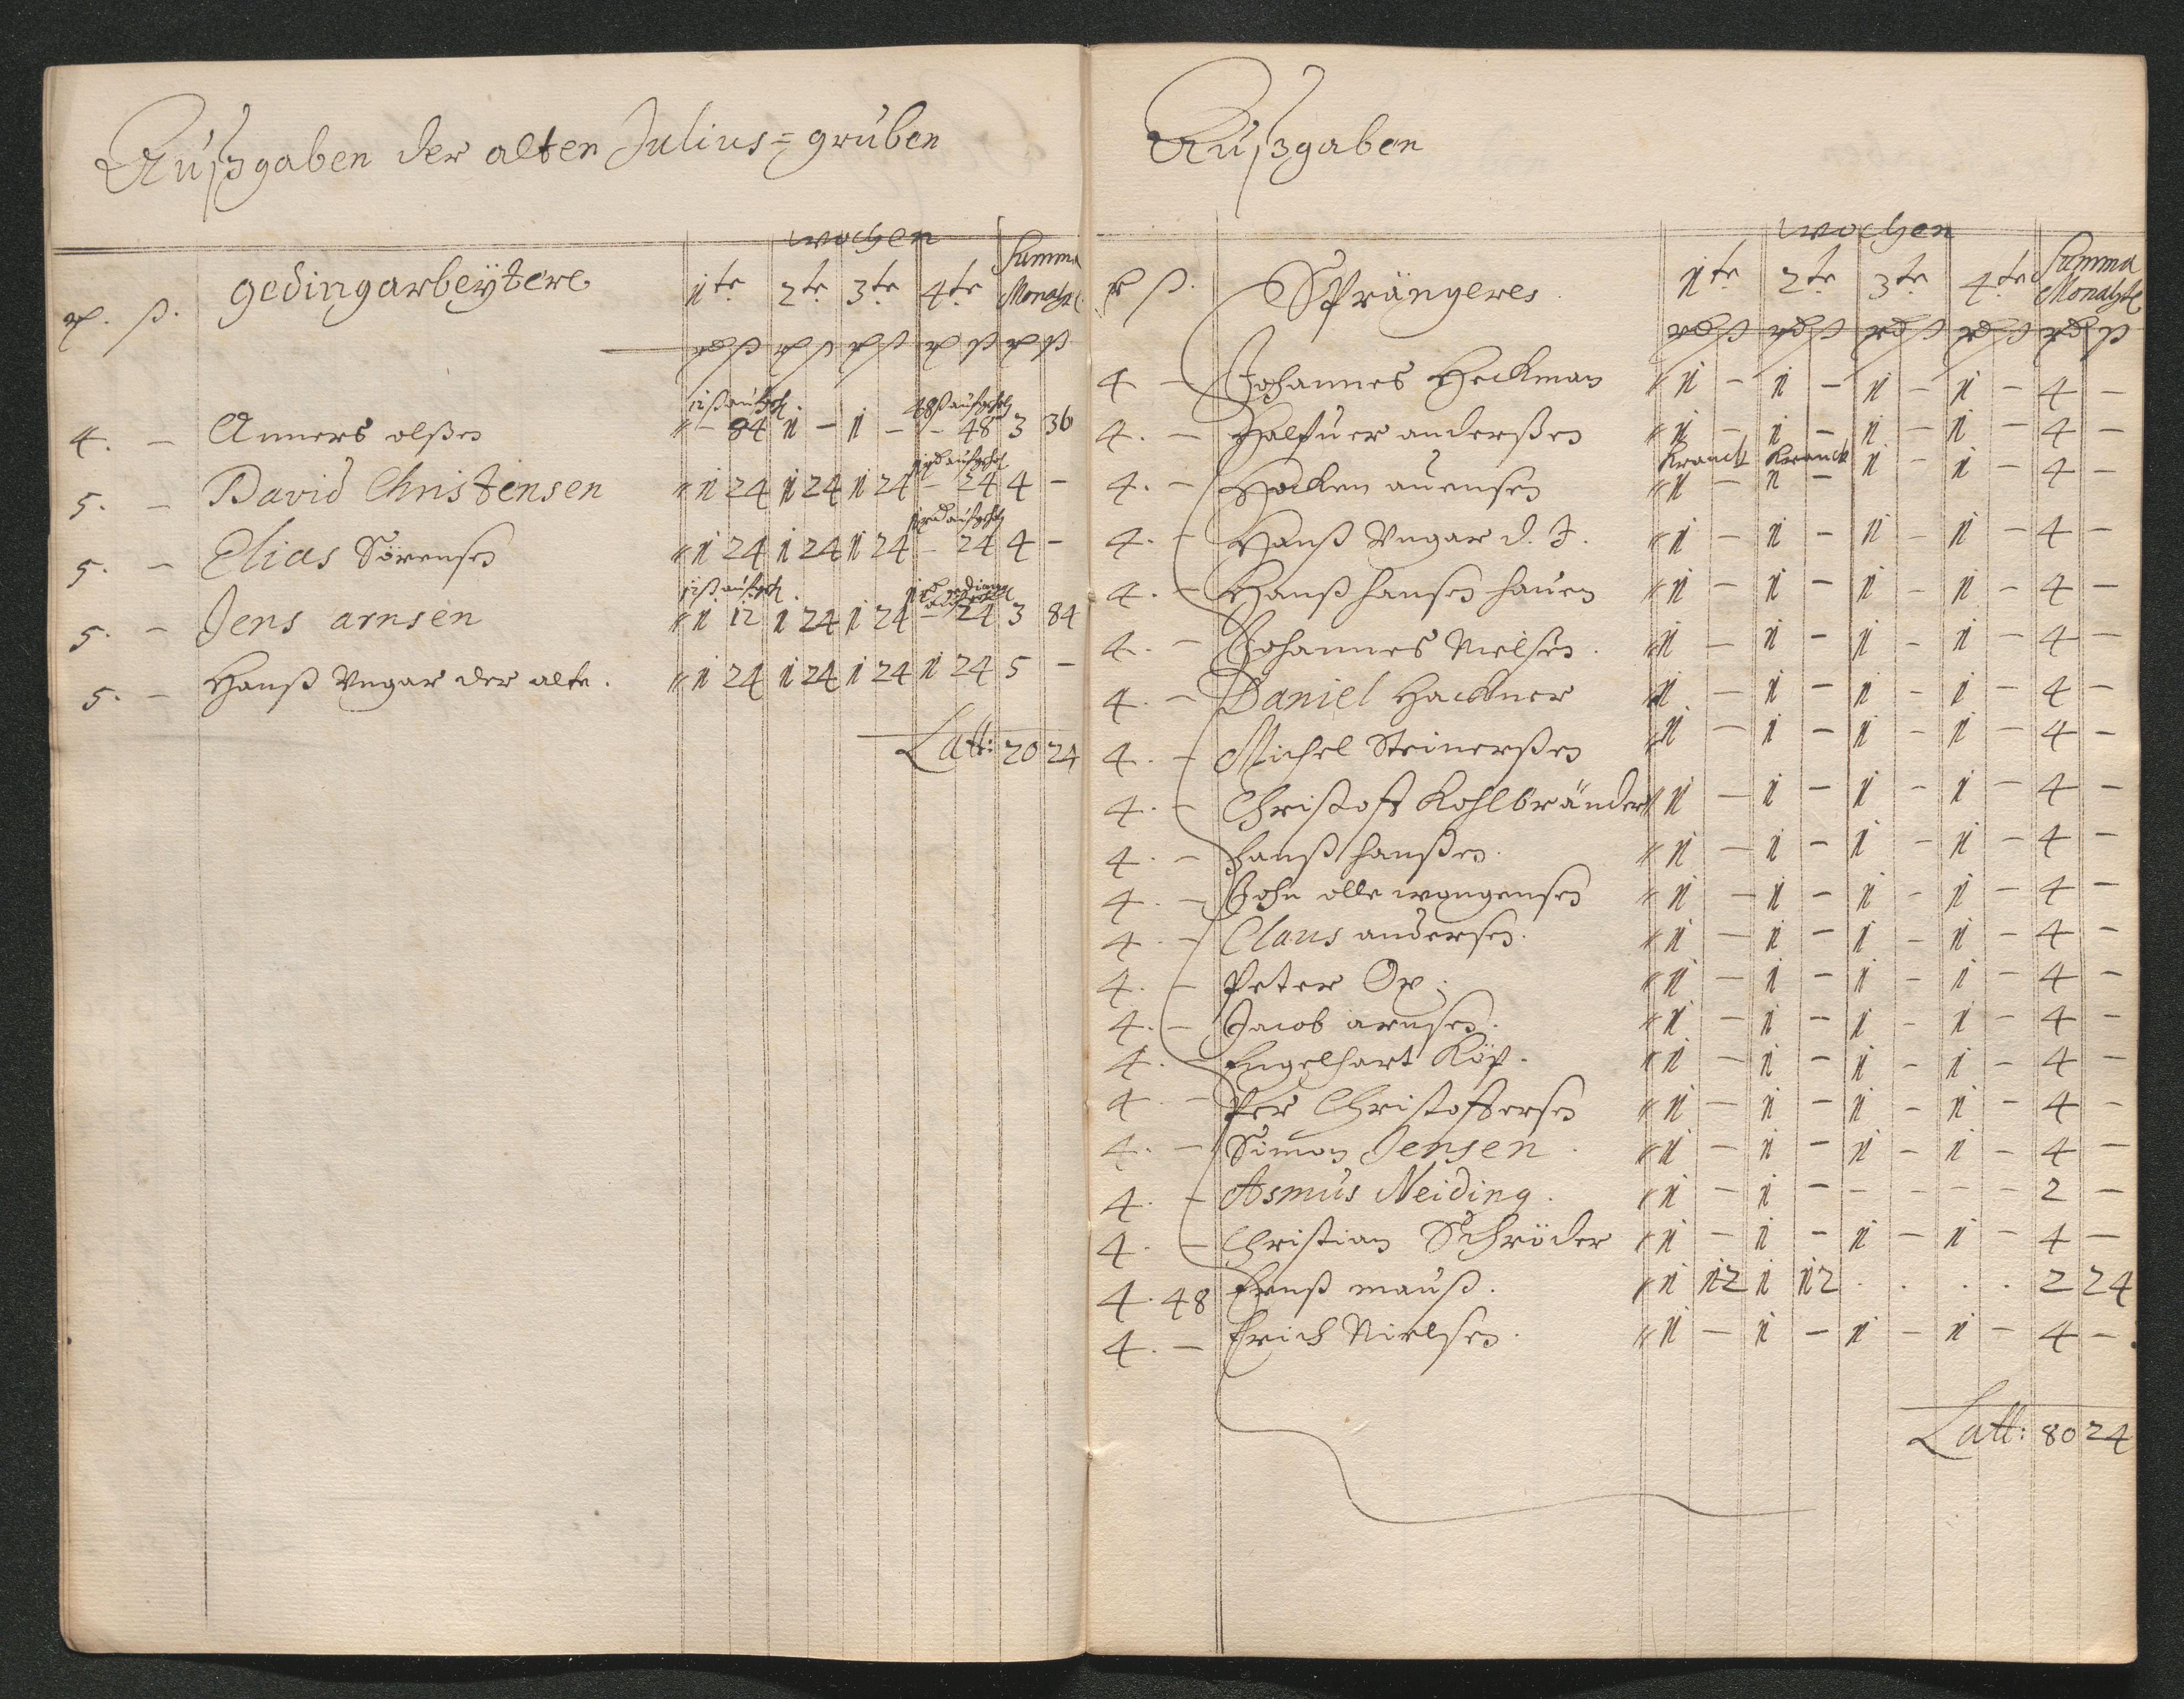 Außgaben der alten Julius=gruben
wochen
rd. ß. gedingarbeÿtere 1te 2te 3te 4te Summa Monahtl
rd ß rd ß rd ß rd ß rd ß
12 ß aufgeh. 48 ß aufgeh
4. - Anners olßen " - 84 1 - 1 - - 48 3 36
1 rd aufgeh
5. - David Christensen " 1 24 1 24 1 24 - 24 4 -
1 rd aufgeh
5. - Elias Sörensen " 1 24 1 24 1 24 - 24 4 -
12 ß aufgeh. 1 rd
5. - Jens arnsen " 1 12 1 24 1 24 - 24 3 84
5. - Hanß Ungar der alte. " 1 24 1 24 1 24 1 24 5 -
Latt: 20 24
Außgaben
wochen
rd ß. Sprängeres. 1te 2te 3te 4te Summa Monahtl
rd ß rd ß rd ß rd ß rd ß
4 - Johannes Heckman " 1 - 1 - 1 - 1 - 4 -
4. - Halfuer anderßen " 1 - 1 - 1 - 1 - 4 -
Kranck Kranck
4. - Hacken auensen " 1 - 1 - 1 - 1 - 4 -
4. - Hanß Ungar d. J. " 1 - 1 - 1 - 1 - 4 -
4. - Hanß hansen hauen " 1 - 1 - 1 - 1 - 4 -
4. - Johannes Nielsen. " 1 - 1 - 1 - 1 - 4 -
4. - Daniel Hackner " 1 - 1 - 1 - 1 - 4 -
4. - Michel Steinerßen " 1 - 1 - 1 - 1 - 4 -
4. - Christoff Kohlbränder " 1 - 1 - 1 - 1 - 4 -
4. - hanß hanßen. " 1 - 1 - 1 - 1 - 4 -
4. - John olle wangensen " 1 - 1 - 1 - 1 - 4 -
4. - Claus andersen. " 1 - 1 - 1 - 1 - 4 -
4. - Peter Ox. " 1 - 1 - 1 - 1 - 4 -
4. - Jacob arnsen. " 1 - 1 - 1 - 1 - 4 -
4. - Engelhart Köp. " 1 - 1 - 1 - 1 - 4 -
4. - Per Christoffersen " 1 - 1 - 1 - 1 - 4 -
4. - Simon Jensen. " 1 - 1 - 1 - 1 - 4 -
4. - Asmus Neiding. " 1 - 1 - - - - - 2 -
4. - Christian Schröder " 1 - 1 - 1 - 1 - 4 -
4. 48 Ernst mauß. " 1 12 1 12 . . . . 2 24
4. - Erich Nielsen. " 1 - 1 - 1 - 1 - 4 -
Latt: 80 24